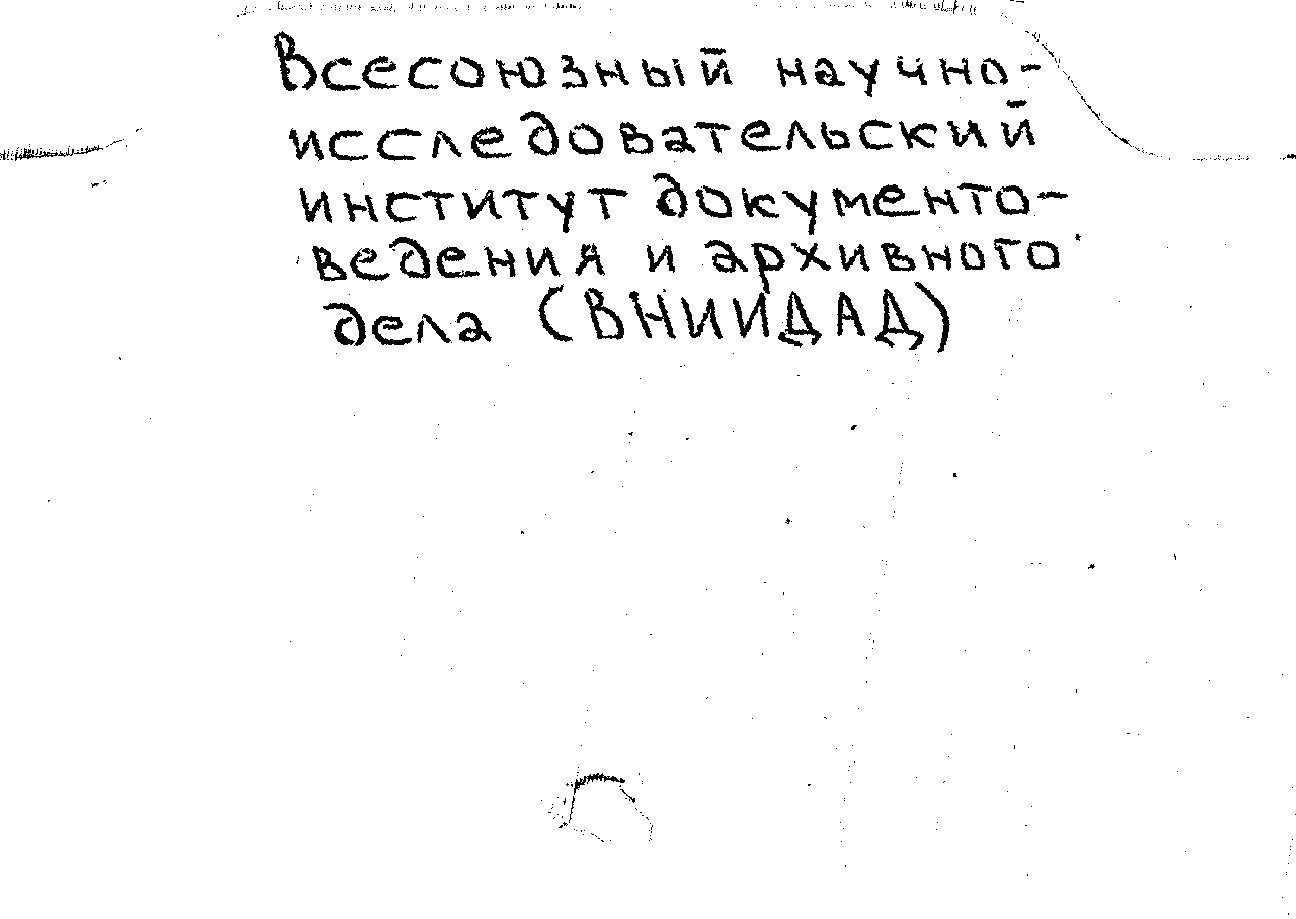 Всесоюзный научно-
исследовательский
институт документо-
ведения и архивного
дела (ВНИИДАД)